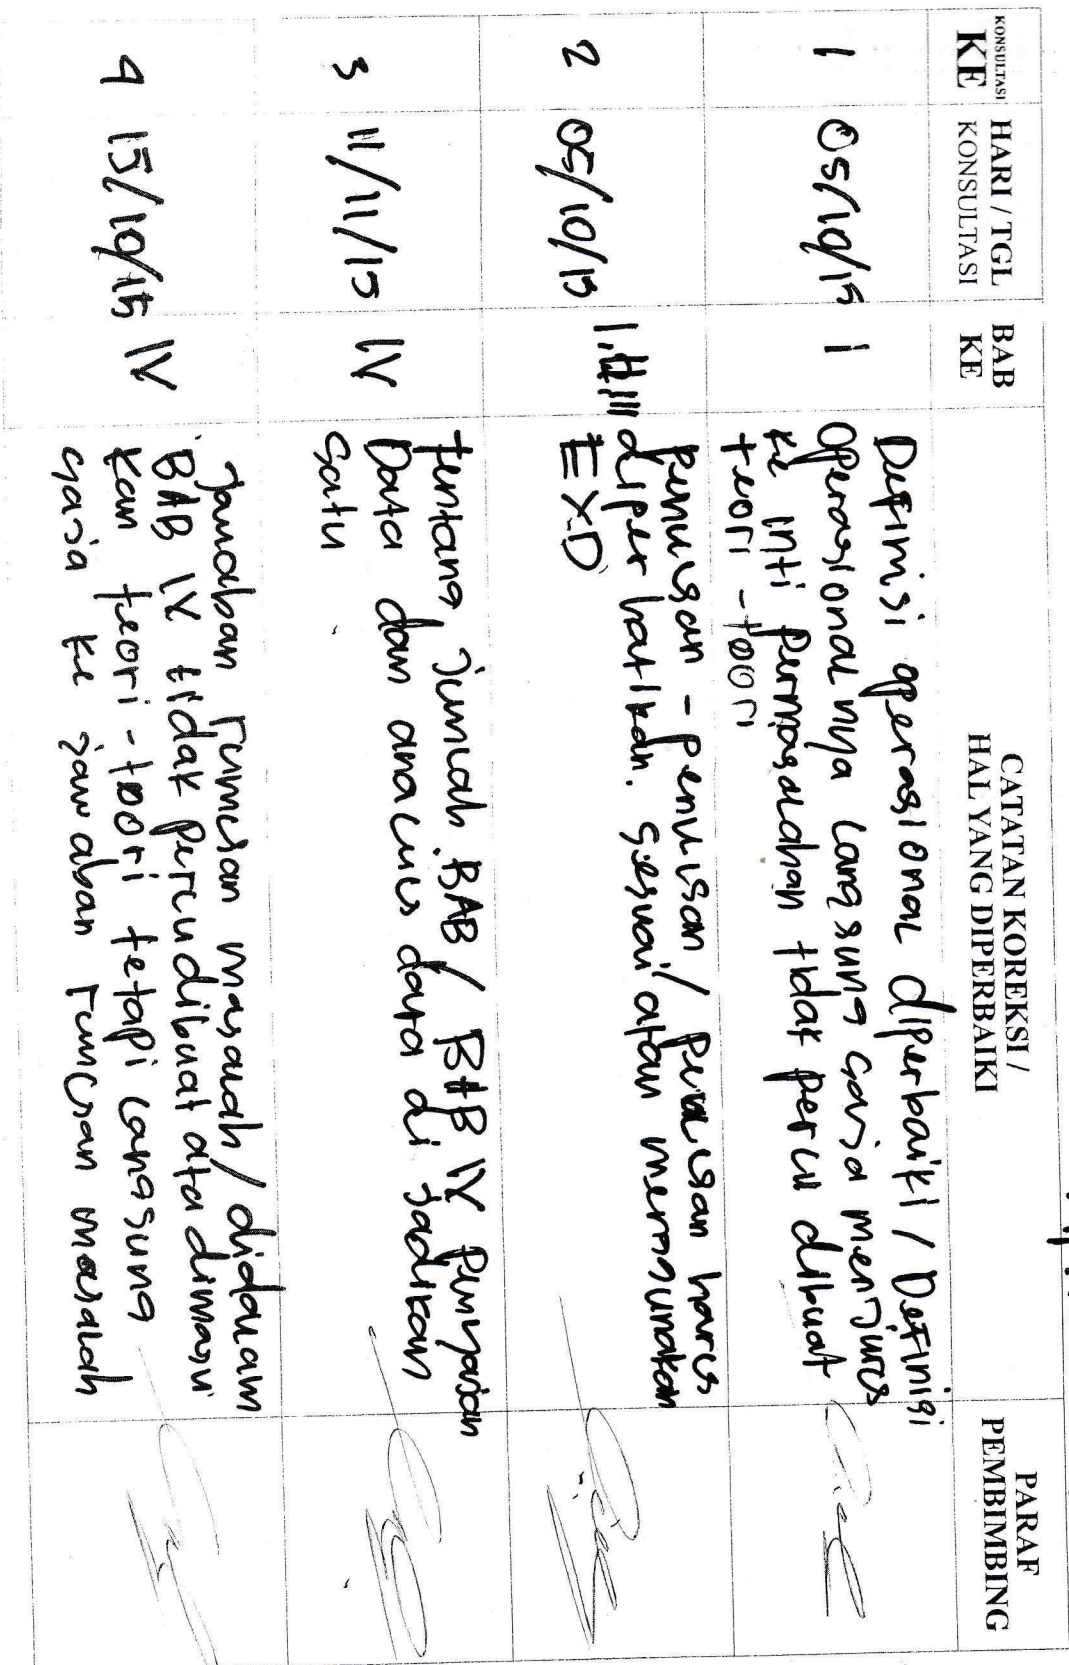 KONSULTASI KE
HARI / TGL KONSULTASI
BAB KE
CATATAN KOREKSI /
HAL YANG DIPERBAIKI
PARAF PEMBIMBING
1
05/10/15
1
Definisi operasional diperbaiki / Definisi
operasionalnya langsung saja menjurus
ke inti permasalahan tidak perlu dibuat
teori - teori
2
05/10/15
I, II, III
penulisan - penulisan / penulisan harus
diperhatikan. sesuai atau menggunakan
EYD
3
11/11/15
IV
tentang jumlah BAB / BAB IV penyajian
Data dan analisis data di jadikan
satu
4
15/10/15
IV
Jawaban rumusan masalah / didalam
BAB IV tidak perlu dibuat atau dimasu
kan teori - teori tetapi langsung
saja ke jawaban rumusan masalah